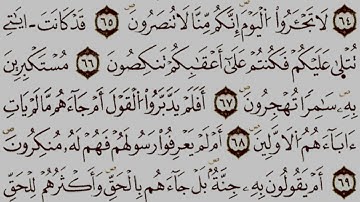 ٦٤ لَا تَجْـَٔرُوا۟ ٱلْيَوْمَ إِنَّكُم مِّنَّا لَا تُنصَرُونَ ٦٥ قَدْ كَانَتْ ءَايَٰتِے
تُتْلَىٰ عَلَيْكُمْ فَكُنتُمْ عَلَىٰٓ أَعْقَٰبِكُمْ تَنكِصُونَ ٦٦ مُسْتَكْبِرِينَ
بِهِۦ سَٰمِرًا تُهْجِرُونَ ٦٧ أَفَلَمْ يَدَّبَّرُوا۟ ٱلْقَوْلَ أَمْ جَآءَهُم مَّا لَمْ يَأْتِ
ءَابَآءَهُمُ ٱلْأَوَّلِينَ ٦٨ أَمْ لَمْ يَعْرِفُوا۟ رَسُولَهُمْ فَهُمْ لَهُۥ مُنكِرُونَ
٦٩ أَمْ يَقُولُونَ بِهِۦ جِنَّةٌۢ بَلْ جَآءَهُم بِالْحَقِّ وَأَكْثَرُهُمْ لِلْحَقِّ